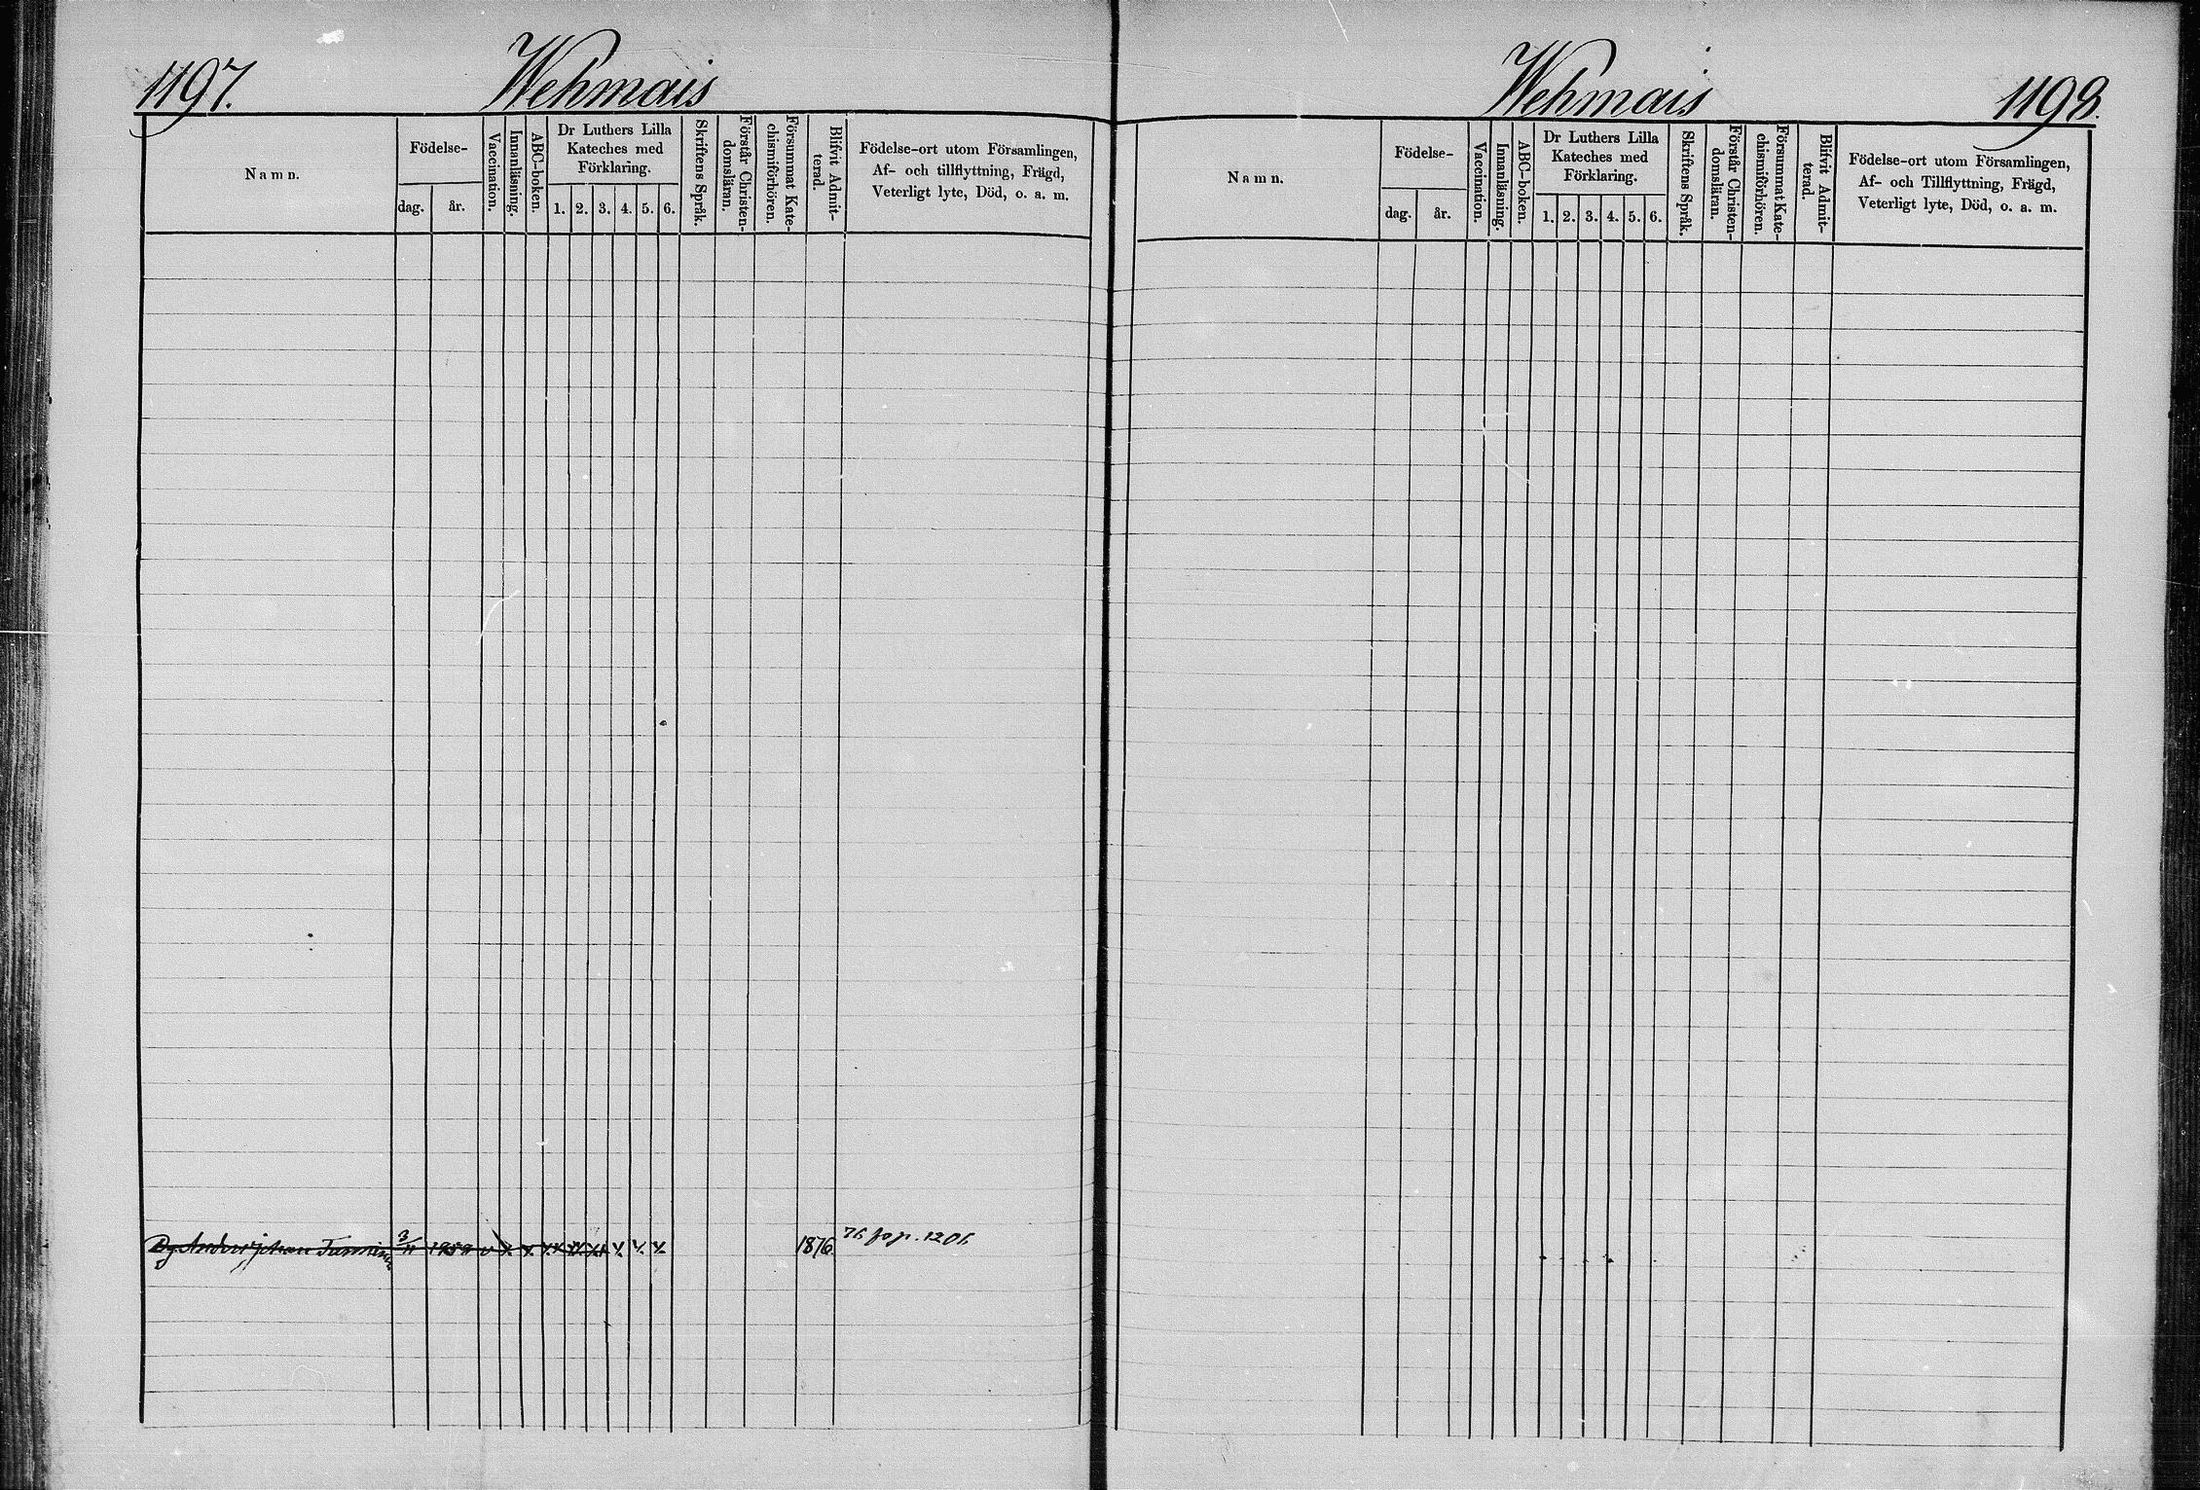 1197.
Wehmais
Namn.
Födelse-
dag.
år.
Vaccination.
Innanläsning.
ABC-boken.
Dr Luthers Lilla
Kateches med
Förklaring.
1. 2. 3. 4. 5. 6.
Skriftens Språk.
Förstår Christen-
domsläran.
Försummat Kate-
chismiförhören.
Blifvit Admit-
terad.
Födelse-ort utom Församlingen,
Af- och tillflyttning, Frägd,
Veterligt lyte, Död, o. a. m.
Johan 3/11 1876 76 fo p. 1206
Wehmais
1198.
Namn.
Födelse-
dag.
år.
Vaccination.
Innanläsning.
ABC-boken.
Dr Luthers Lilla
Kateches med
Förklaring.
1. 2. 3. 4. 5. 6.
Skriftens Språk.
Förstår Christen-
domsläran.
Försummat Kate-
chismiförhören.
Blifvit Admit-
terad.
Födelse-ort utom Församlingen,
Af- och Tillflyttning, Frägd,
Veterligt lyte, Död, o. a. m.